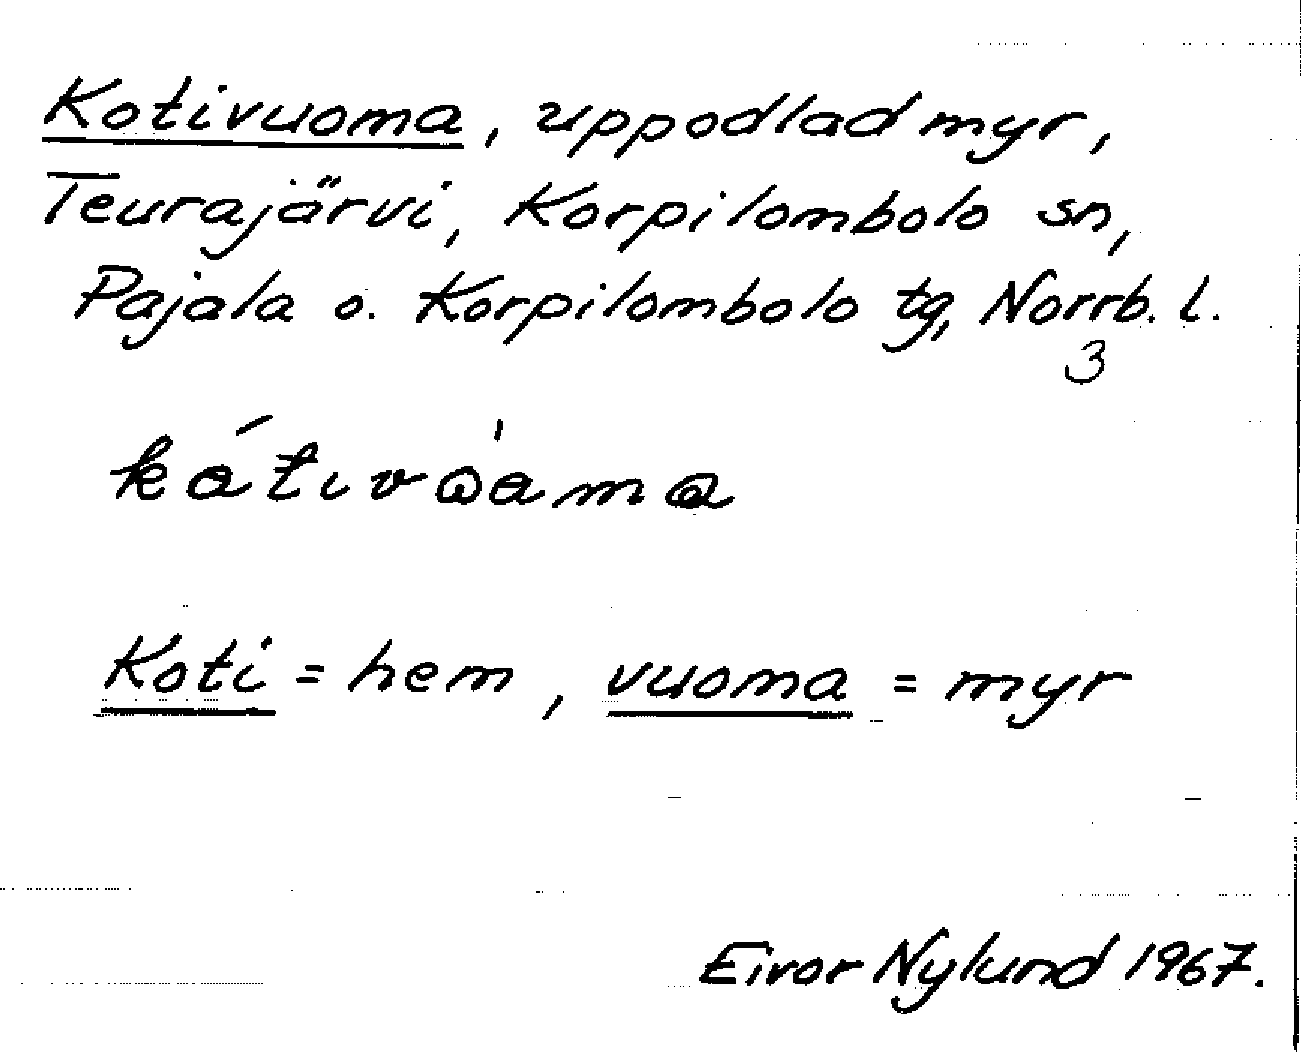 Kotivuoma, uppodlad myr,
Teurajärvi, Korpilombolo sn,
Pajala o. Korpilombolo tg, Norrb. l.
3
Koti = hem, vuoma = myr
Eivor Nylund 1967.